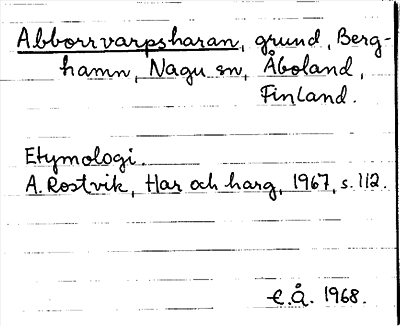 Abborrvarpsharan, grund, Berg-
hamn, Nagu sn, Åboland,
Finland.
Etymologi.
A. Rostvik, Har och harg, 1967, s. 112.
E.Å. 1968.